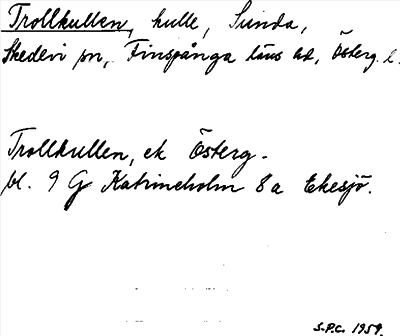 Trollkullen, kulle, Sunda,
Skedevi sn, Finspånga läns hd, Österg. l.
Trollkullen, ek Österg.
bl. 9 G Katrineholm 8 a Ekesjö.
S.P.C. 1959.